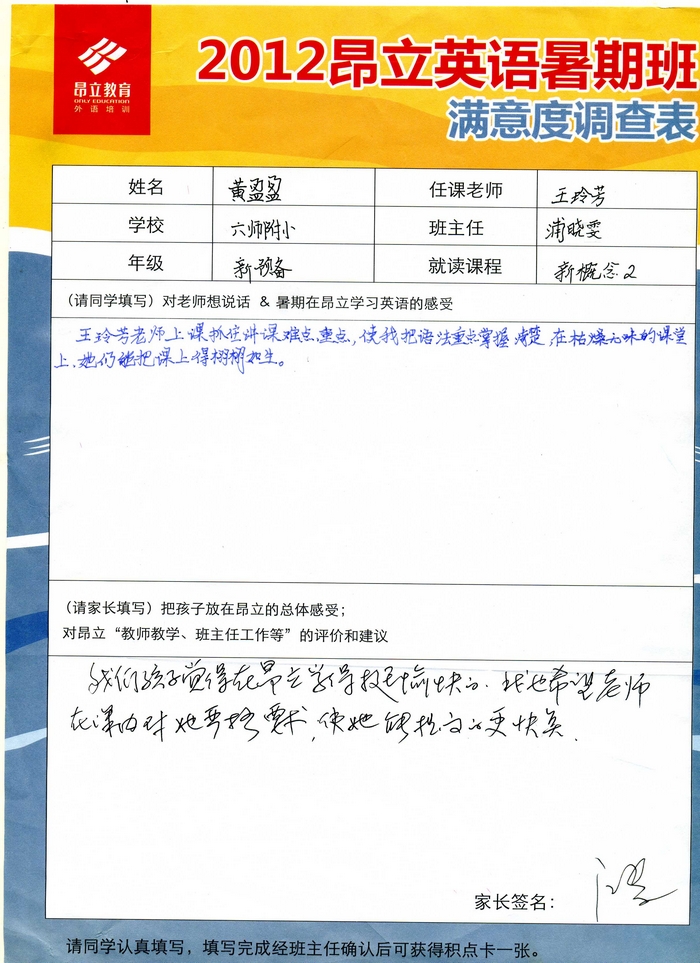 昂立教育
ONLY EDUCATION
外语培训
2012昂立英语暑期班
满意度调查表
姓名 黄盈盈 任课老师 王玲芳
学校 六师附小 班主任 浦晓雯
年级 新预备 就读课程 新概念2
(请同学填写)对老师想说话 & 暑期在昂立学习英语的感受
王玲芳老师上课抓住讲课难点、重点,使我把语法重点掌握清楚,在枯燥无味的课堂
上,她仍能把课上得栩栩如生。
(请家长填写)把孩子放在昂立的总体感受;
对昂立“教师教学、班主任工作等”的评价和建议
我们孩子觉得在昂立学得挺愉快的。我也希望老师
在课内对她严格要求,使她能提高的更快美。
家长签名:
请同学认真填写,填写完成经班主任确认后可获得积点卡一张。